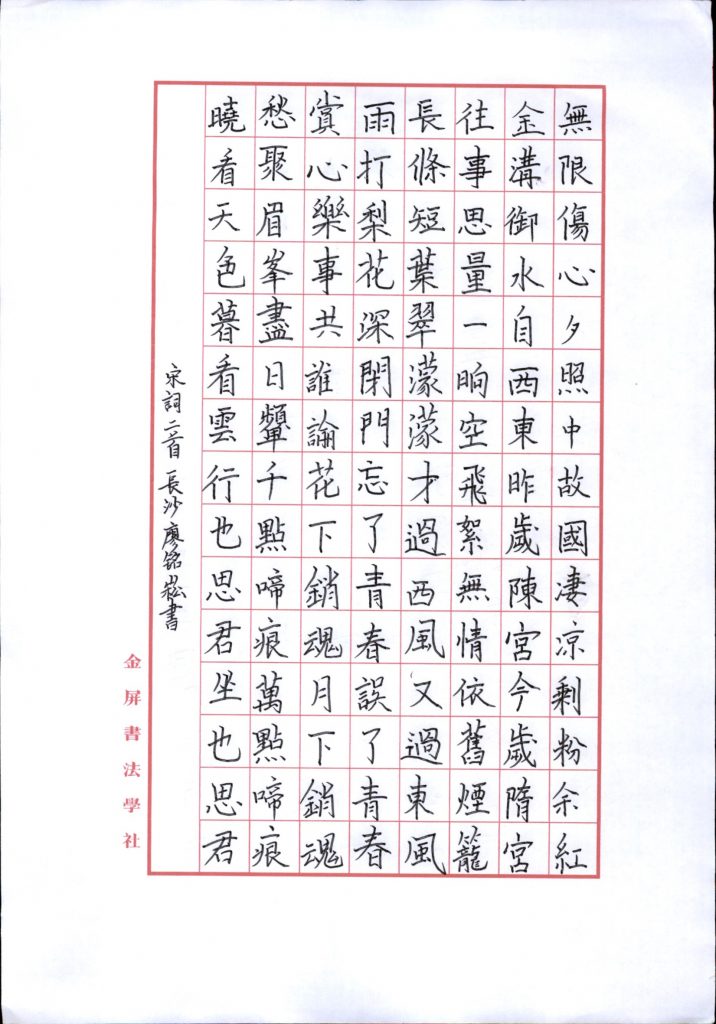 無限傷心夕照中故國淒涼剩粉余紅
金溝御水自西東昨歲陳宮今歲隋宮
往事思量一晌空飛絮無情依舊煙籠
長條短葉翠濛濛才過西風又過東風
雨打梨花深閉門忘了青春誤了青春
賞心樂事共誰論花下銷魂月下銷魂
愁聚眉峯盡日顰千點啼痕萬點啼痕
曉看天色暮看雲行也思君坐也思君
宋詞二首長沙廖銘崧書
金屏書法學社